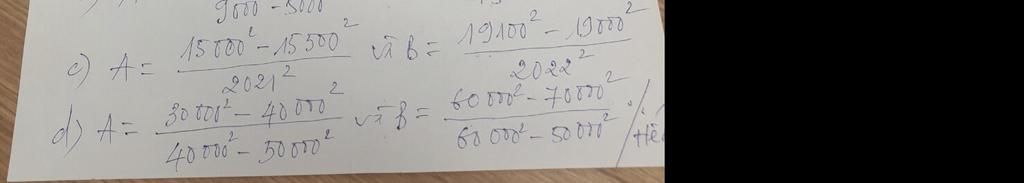 9000 - 5000
c) A = (15000² - 15500²) / 2021² và B = (19100² - 19000²) / 2022²
d) A = (30000² - 40000²) / (40000² - 50000²) và B = (60000² - 70000²) / (60000² - 50000²) ./.